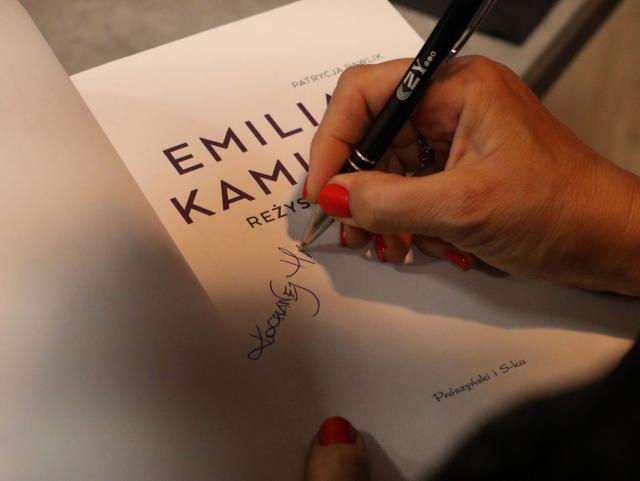 PATRYCJA PAWLIK
EMILIA
KAMI
REŻYS
KOCHANEJ H
Prószyński i S-ka